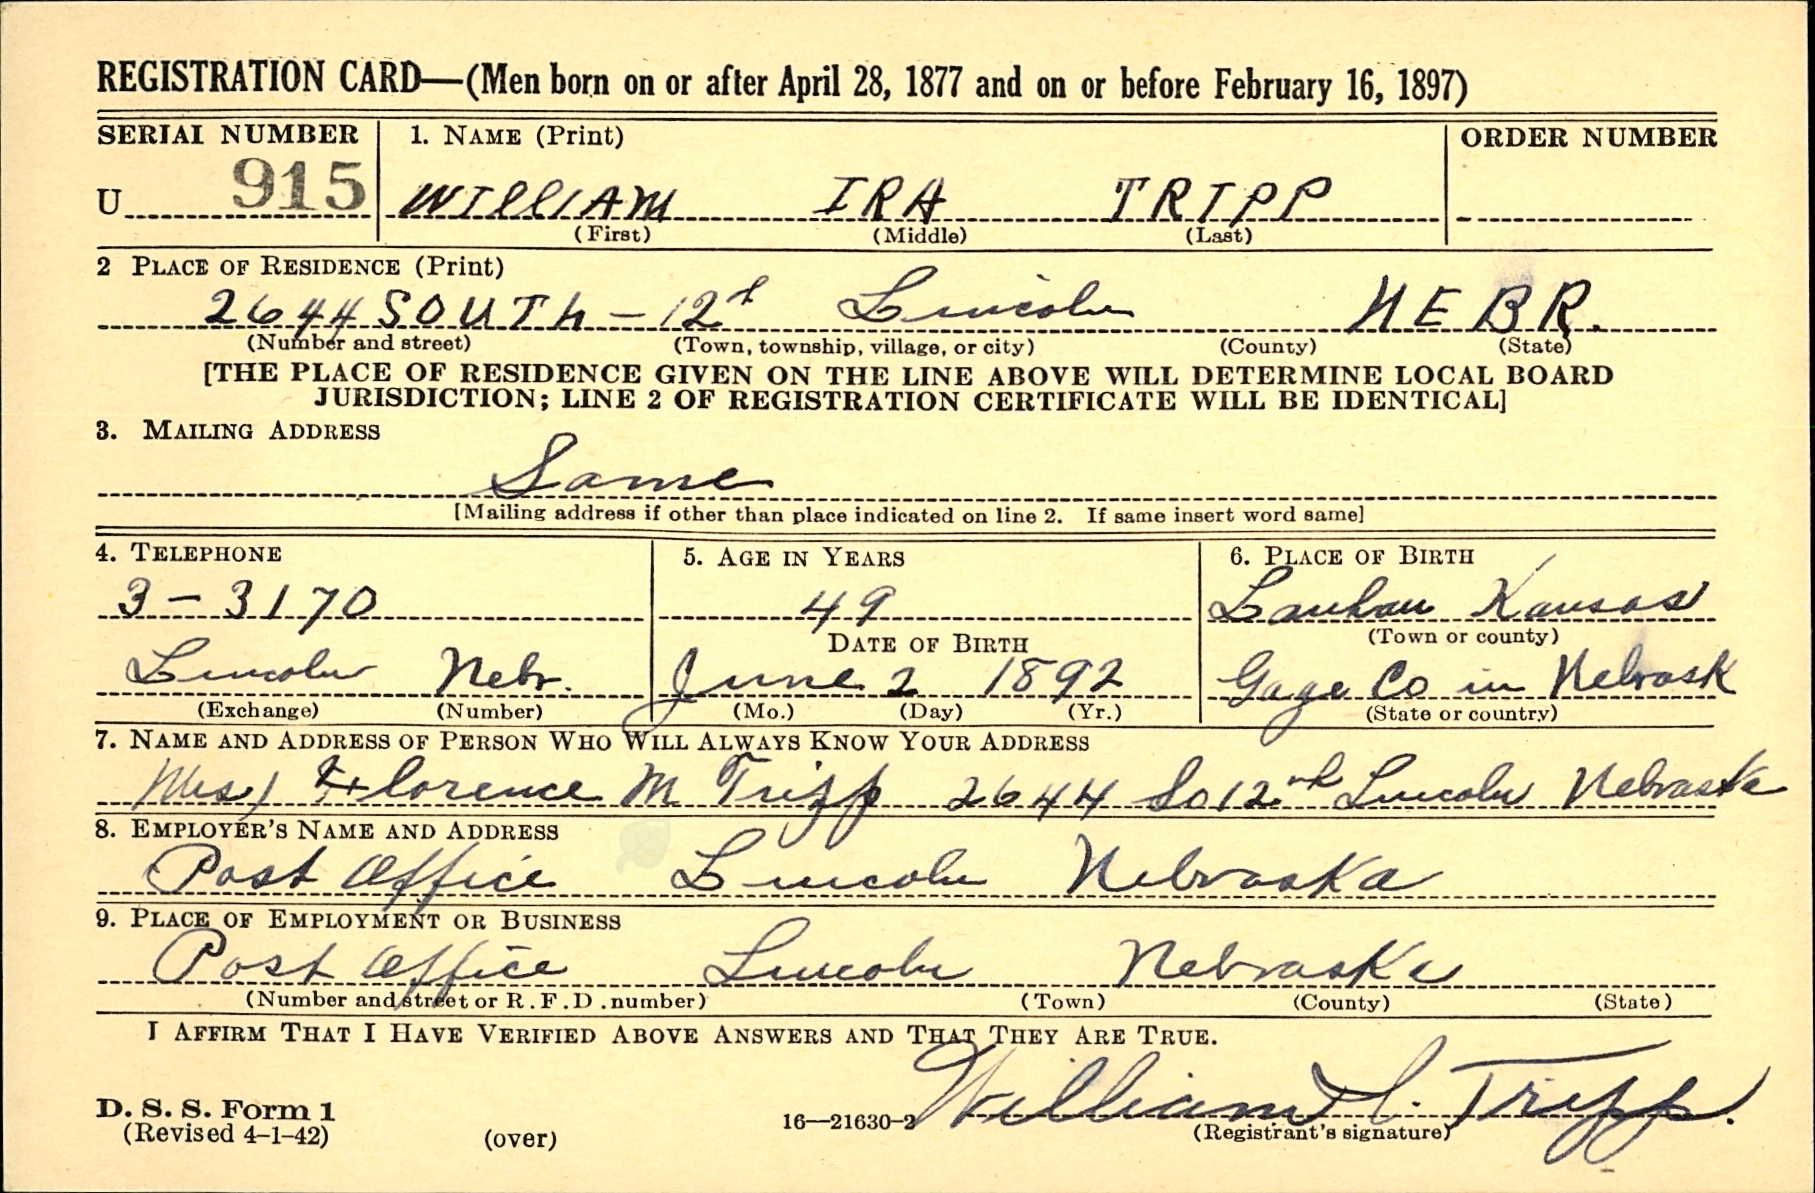 REGISTRATION CARD—(Men born on or after April 28, 1877 and on or before February 16, 1897)
SERIAL NUMBER 1. NAME (Print) ORDER NUMBER
U 915 WILLIAM IRA TRIPP
(First) (Middle) (Last)
2 PLACE OF RESIDENCE (Print)
2644 SOUTH - 12th Lincoln NEBR.
(Number and street) (Town, township, village, or city) (County) (State)
[THE PLACE OF RESIDENCE GIVEN ON THE LINE ABOVE WILL DETERMINE LOCAL BOARD
JURISDICTION; LINE 2 OF REGISTRATION CERTIFICATE WILL BE IDENTICAL]
3. MAILING ADDRESS
Same
[Mailing address if other than place indicated on line 2. If same insert word same]
4. TELEPHONE 5. AGE IN YEARS 6. PLACE OF BIRTH
3-3170 49 Lanham Kansas
DATE OF BIRTH (Town or county)
Lincoln Nebr. June 2 1892 Gage Co in Nebrask
(Exchange) (Number) (Mo.) (Day) (Yr.) (State or country)
7. NAME AND ADDRESS OF PERSON WHO WILL ALWAYS KNOW YOUR ADDRESS
Mrs) Florence M Tripp 2644 So 12th Lincoln Nebraska
8. EMPLOYER'S NAME AND ADDRESS
Post Office Lincoln Nebraska
9. PLACE OF EMPLOYMENT OR BUSINESS
Post Office Lincoln Nebraska
(Number and street or R.F.D. number) (Town) (County) (State)
I AFFIRM THAT I HAVE VERIFIED ABOVE ANSWERS AND THAT THEY ARE TRUE.
William I. Tripp.
D. S. S. Form 1
(Revised 4-1-42) (over) 16—21630-2 (Registrant's signature)